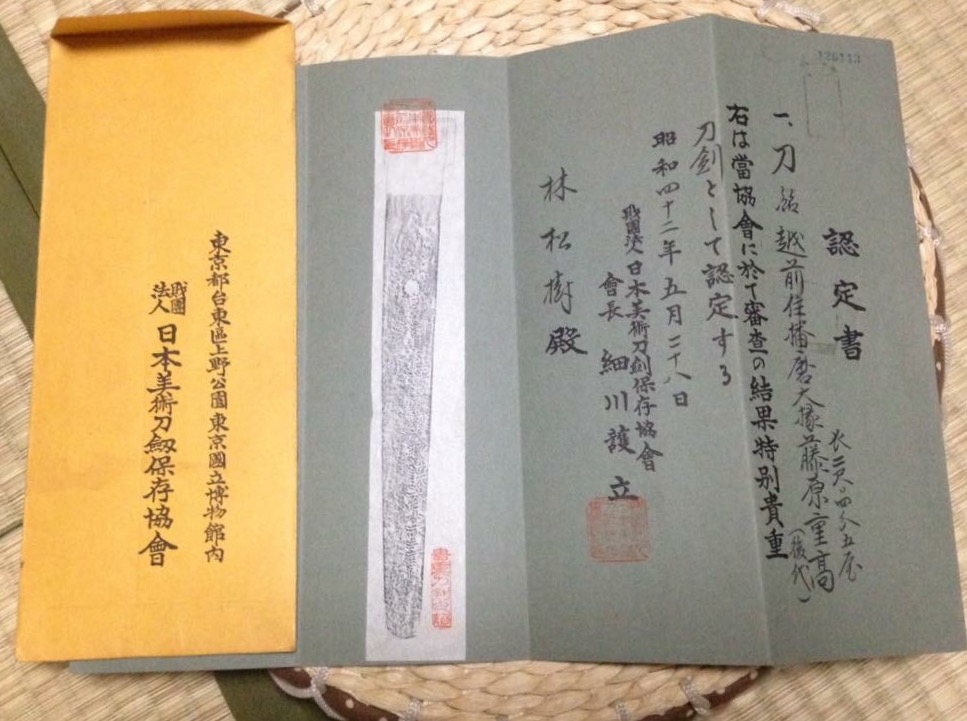 認定書
一、刀 銘 越前住播磨大掾藤原重高
(後代)
右は當協會に於て審査の結果特別貴重
刀劍として認定する
昭和四十二年五月二十八日
財團法人 日本美術刀劍保存協會
會長 細川護立
林松樹殿
東京都台東區上野公園東京國立博物館内
財團法人 日本美術刀劔保存協會